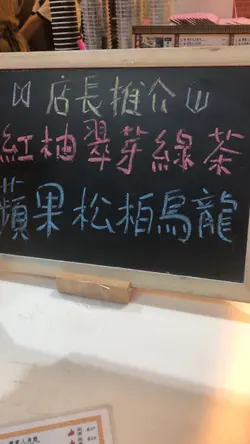 店長推介
紅柚翠芽綠茶
蘋果松柏烏龍